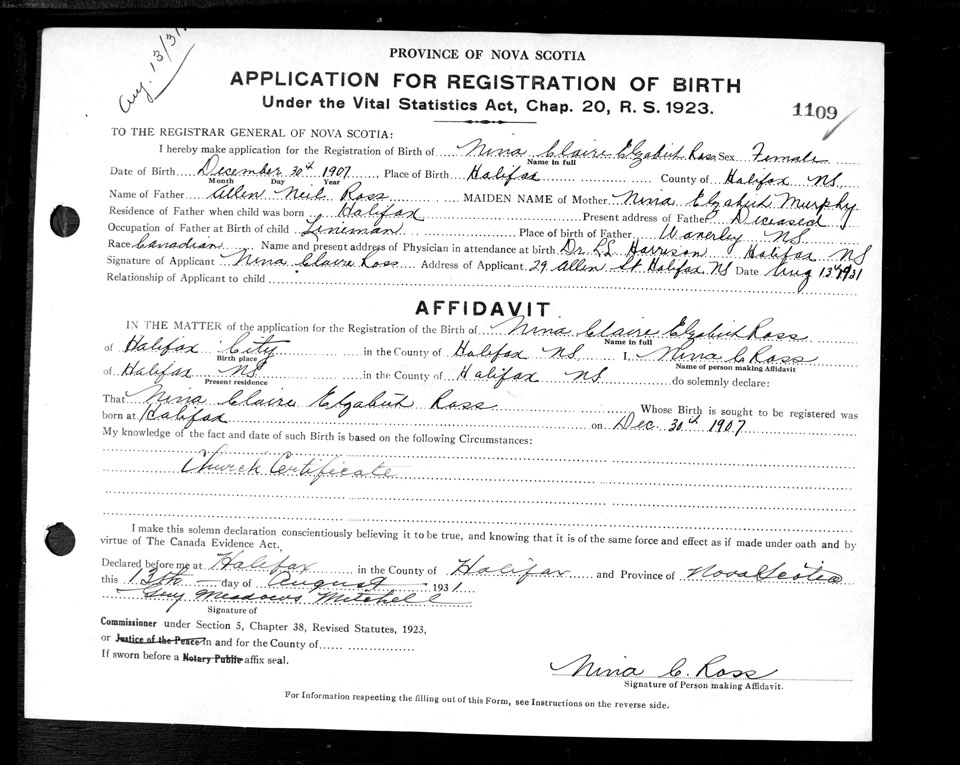 Aug. 13/31.
PROVINCE OF NOVA SCOTIA
APPLICATION FOR REGISTRATION OF BIRTH
Under the Vital Statistics Act, Chap. 20, R. S. 1923.
1109
TO THE REGISTRAR GENERAL OF NOVA SCOTIA:
I hereby make application for the Registration of Birth of Nina Claire Elzabeth Ross Sex Female
Name in full
Date of Birth December 30th 1907 Place of Birth Halifax County of Halifax NS
Month Day Year
Name of Father Allen Neil Ross MAIDEN NAME of Mother Nina Elzabeth Murphy
Residence of Father when child was born Halifax Present address of Father Deceased
Occupation of Father at Birth of child Lineman Place of birth of Father Waverley NS
Race Canadian Name and present address of Physician in attendance at birth Dr. Harrison Halifax NS
Signature of Applicant Nina Claire Ross Address of Applicant 29 Allen St Halifax NS Date Aug 13th 1931
Relationship of Applicant to child
AFFIDAVIT
IN THE MATTER of the application for the Registration of the Birth of Nina Claire Elzabeth Ross
Name in full
of Halifax City in the County of Halifax NS I, Nina C Ross
Birth place Name of person making Affidavit
of Halifax NS in the County of Halifax NS do solemnly declare:
Present residence
That Nina Claire Elzabeth Ross Whose Birth is sought to be registered was
born at Halifax on Dec. 30th 1907
My knowledge of the fact and date of such Birth is based on the following Circumstances:
Church Certificate
I make this solemn declaration conscientiously believing it to be true, and knowing that it is of the same force and effect as if made under oath and by
virtue of The Canada Evidence Act.
Declared before me at Halifax in the County of Halifax and Province of Nova Scotia
this 13th day of August 1931
Guy Meadows Mitchell
Signature of
Commissioner under Section 5, Chapter 38, Revised Statutes, 1923,
or Justice of the Peace in and for the County of
If sworn before a Notary Public affix seal.
Nina C. Ross
Signature of Person making Affidavit.
For Information respecting the filling out of this Form, see Instructions on the reverse side.